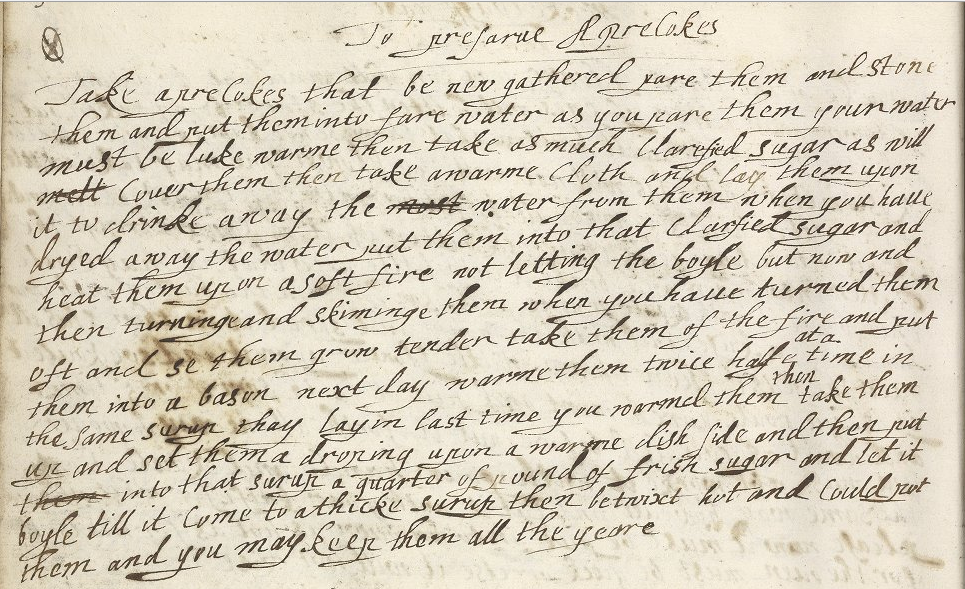 To presarve Aprecokes
Take aprecokes that be new gathered pare them and stone
them and put them into fare water as you pare them your water
must be luke warme then take as much Clarefied sugar as will
melt Cover them then take awarme Cloth and lay them upon
it to drinke away the most water from them when you have
dryed away the water put them into that Clarfied sugar and
heat them upon a soft fire not letting the boyle but now and
then turninge and skiminge them when you have turned them
oft and se them grow tender take them of the fire and put
them into a bason next day warme them twice halfe at a time in
the same surup thay lay in last time you warmed them then take them
up and set them a droping upon a warme dish side and then put
them into that surup a quarter of pound of frish sugar and let it
boyle till it Come to athicke surup then betwixt hot and Could pot
them and you may keep them all the yeare